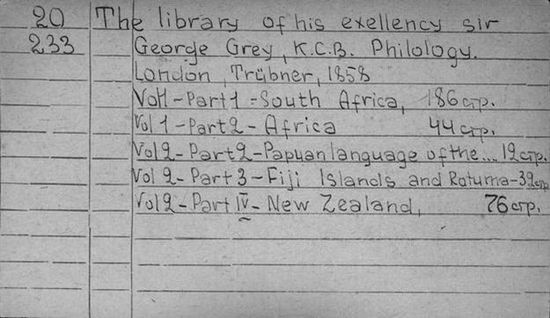 20 The library of his exellency sir
233 George Grey, K.C.B. Philology.
London, Trübner, 1858
Vol1-Part1-South Africa, 186стр.
Vol1-Part2-Africa 44стр.
Vol2-Part2-Papuan language of the... 12стр.
Vol2-Part3-Fiji Islands and Rotuma-39стр
Vol2-Part IV-New Zealand, 76стр.